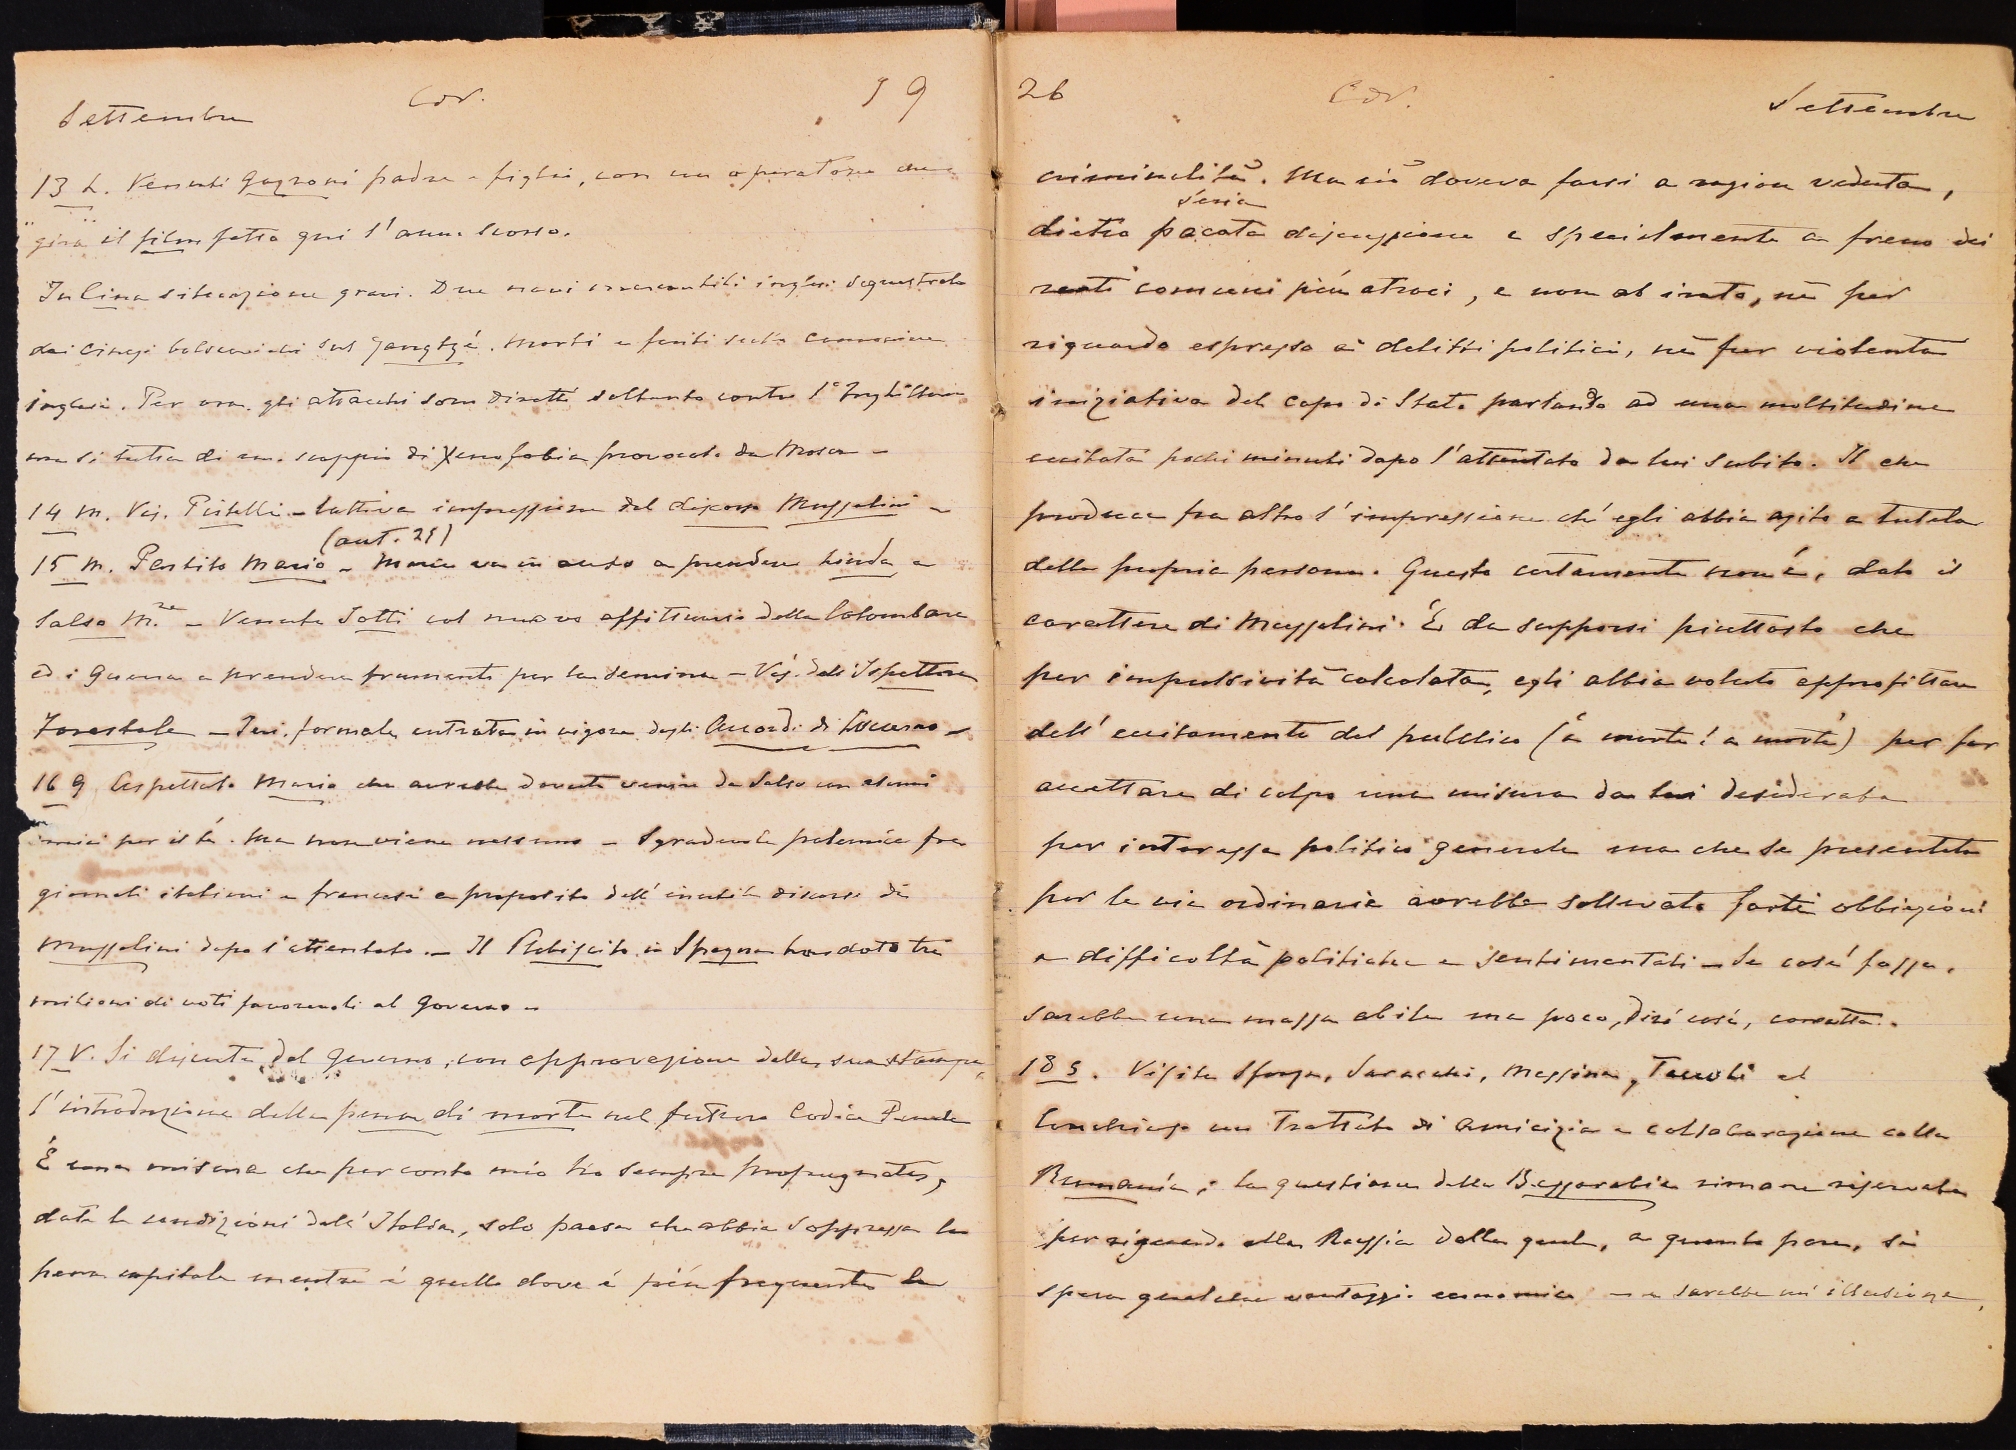 Settembre Cor. 19
13 L. Venuti Gazzoni padre e figlio, con un operatore che
"gira" il film fatto qui l'anno scorso.
In Cina situazione grave. Due navi mercantili inglesi sequestrate
dai cinesi bolscevichi sul Jangtzé. Morti e feriti sulla cannoniera
inglese. Per ora gli attacchi sono diretti soltanto contro l'Inghilterra
ma si tratta di uno scoppio di Xenofobia provocato da Mosca –
14 M. Vis. Pistelli – Cattiva impressione del discorso Mussolini –
(aut. 21)
15 M. Partito Mario – Maria va in auto a prendere Linda a
Salso M.re – Venuto Sotti col nuovo affittuario della Colombara
ed i Guerra a prendere frumento per la semina – Vis. dell'Ispettore
Forestale – Ieri formale entrata in vigore degli Accordi di Locarno –
16 G Aspettato Mario che avrebbe dovuto venire da Salso con alcuni
amici per il tè. Ma non viene nessuno – Sgradevole polemica fra
giornali italiani e francesi a proposito dell' discorso di
Mussolini dopo l'attentato. – Il Plebiscito in Spagna ha dato tre
milioni di voti favorevoli al Governo –
17 V. Si discute del Governo, con approvazione della sua stampa,
l'introduzione della pena di morte nel futuro Codice Penale
È una misura che per conto mio ho sempre propugnato,
date le condizioni dell'Italia, solo paese che abbia soppressa la
pena capitale mentre è quello dove è più frequente la
26 Cor. Settembre
criminalità. Ma ciò doveva farsi a ragion veduta,
seria
dietro pacata discussione e specialmente a freno dei
reati comuni più atroci, e non ab irato, nè per
riguardo espresso ai delitti politici, nè per violenta
iniziativa del capo di Stato parlando ad una moltitudine
eccitata pochi minuti dopo l'attentato da lui subito. Il che
produce fra altro l'impressione ch'egli abbia agito a tutela
della propria persona. Questo certamente non è, dato il
carattere di Mussolini. È da supporsi piuttosto che
per impulsività calcolata, egli abbia voluto approfittare
dell'eccitamento del pubblico (a morte! a morte) per far
accettare di colpo una misura da lui desiderata
per interesse politico generale ma che se presentata
per la via ordinaria avrebbe sollevato forti obbiezioni
e difficoltà politiche e sentimentali – Se così fosse,
sarebbe una mossa abile ma poco, dirò così, corretta.
18 S. Visite Sforza, Saracchi, Messina, Taccoli al
Concluso un Trattato di amicizia e collaborazione colla
Rumania; la questione della Bessarabia rimane riservata
per riguardo alla Russia dalla quale, a quanto pare, si
spera qualche vantaggio economico – e sarebbe un'illusione,